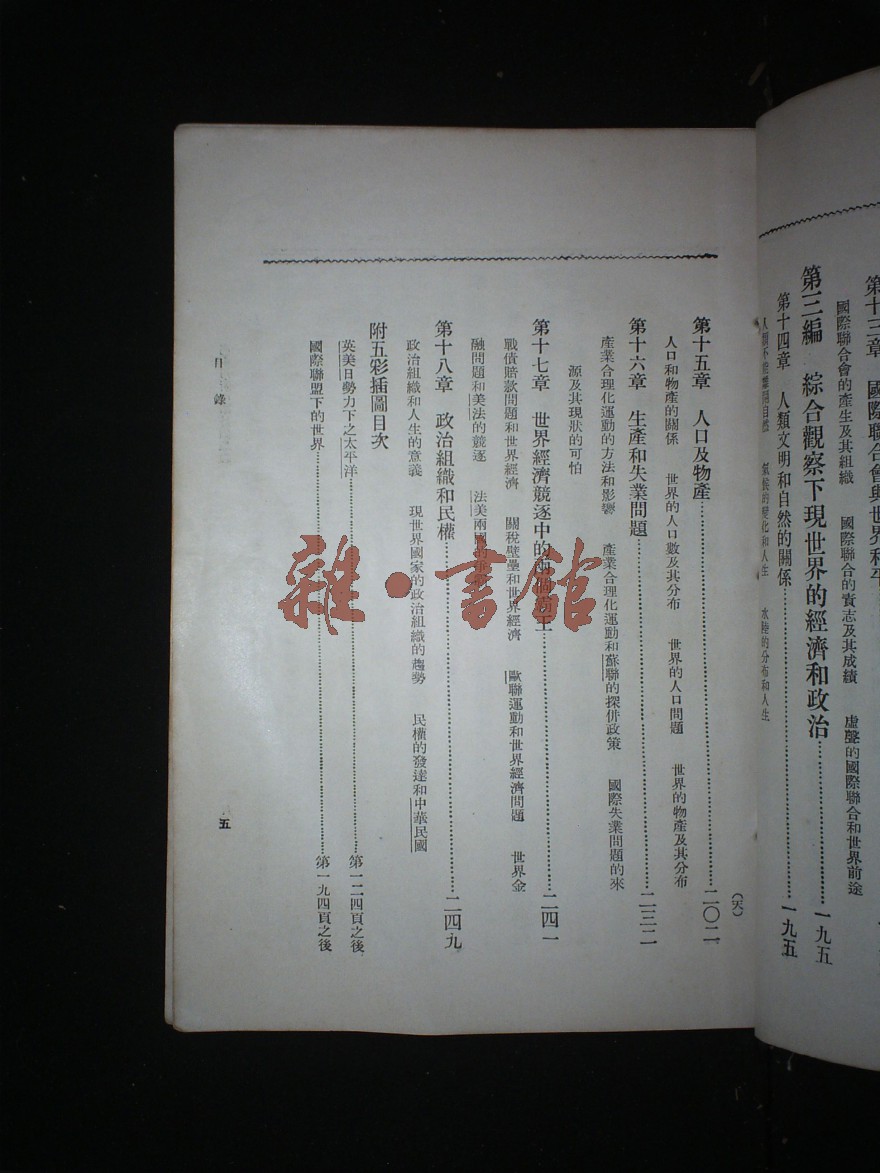 第十三章　國際聯合會與世界和平
國際聯合會的產生及其組織　國際聯合的責志及其成績　虛聲的國際聯合和世界前途
第三編　綜合觀察下現世界的經濟和政治…………一九五
第十四章　人類文明和自然的關係…………一九五
人類不能離開自然　氣候的變化和人生　水陸的分布和人生
(六)
第十五章　人口及物產…………二〇二
人口和物產的關係　世界的人口數及其分布　世界的人口問題　世界的物產及其分布
第十六章　生產和失業問題…………二三二
產業合理化運動的方法和影響　產業合理化運動和蘇聯的探併政策　國際失業問題的來
源及其現狀的可怕
第十七章　世界經濟競逐中的兩個霸王…………二四一
戰債賠款問題和世界經濟　關稅壁壘和世界經濟　歐聯運動和世界經濟問題　世界金
融問題和美法的競逐　法美兩國的
第十八章　政治組織和民權…………二四九
政治組織和人生的意義　現世界國家的政治組織的趨勢　民權的發達和中華民國
附五彩插圖目次
英美日勢力下之太平洋…………第一二四頁之後
國際聯盟下的世界…………第一九四頁之後
目錄
五
雜·書館